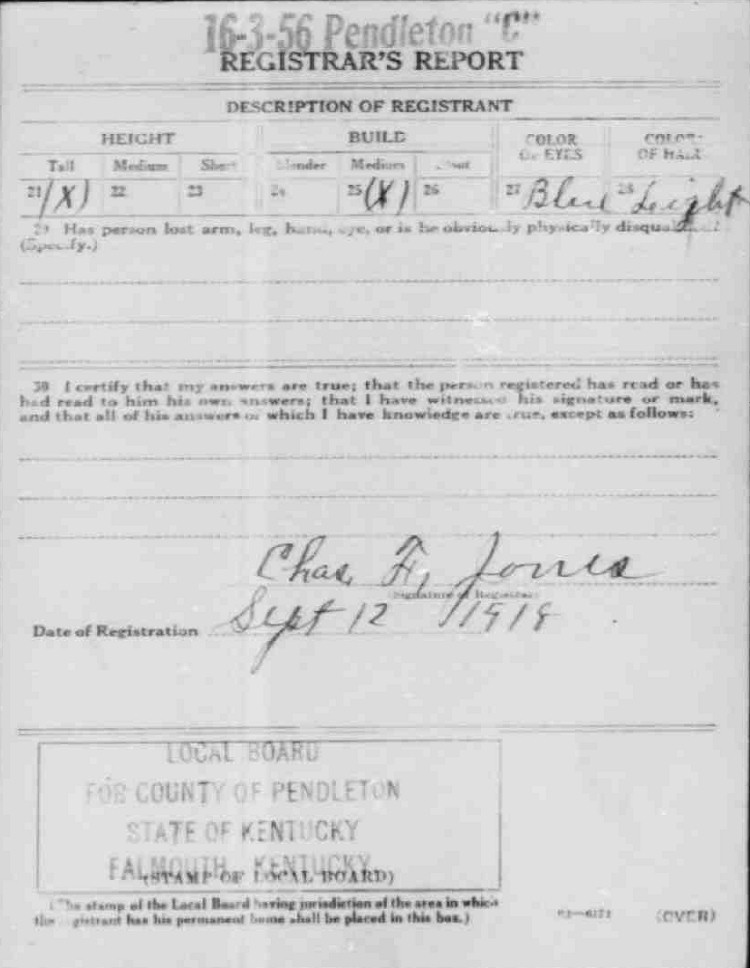 16-3-56 Pendleton "C"
REGISTRAR'S REPORT
DESCRIPTION OF REGISTRANT
HEIGHT BUILD COLOR OF EYES COLOR OF HAIR
Tall Medium Short Slender Medium Stout
21 (X) 22 23 24 25 (X) 26 27 Blue 28 Light
29 Has person lost arm, leg, hand, eye, or is he obviously physically disqualified?
(Specify.)
30 I certify that my answers are true; that the person registered has read or has
had read to him his own answers; that I have witnessed his signature or mark,
and that all of his answers of which I have knowledge are true, except as follows:
Chas. F. Jones
(Signature of Registrar)
Date of Registration Sept 12 1918
LOCAL BOARD
FOR COUNTY OF PENDLETON
STATE OF KENTUCKY
FALMOUTH, KENTUCKY
(STAMP OF LOCAL BOARD)
(The stamp of the Local Board having jurisdiction of the area in which
the registrant has his permanent home shall be placed in this box.)
(OVER)